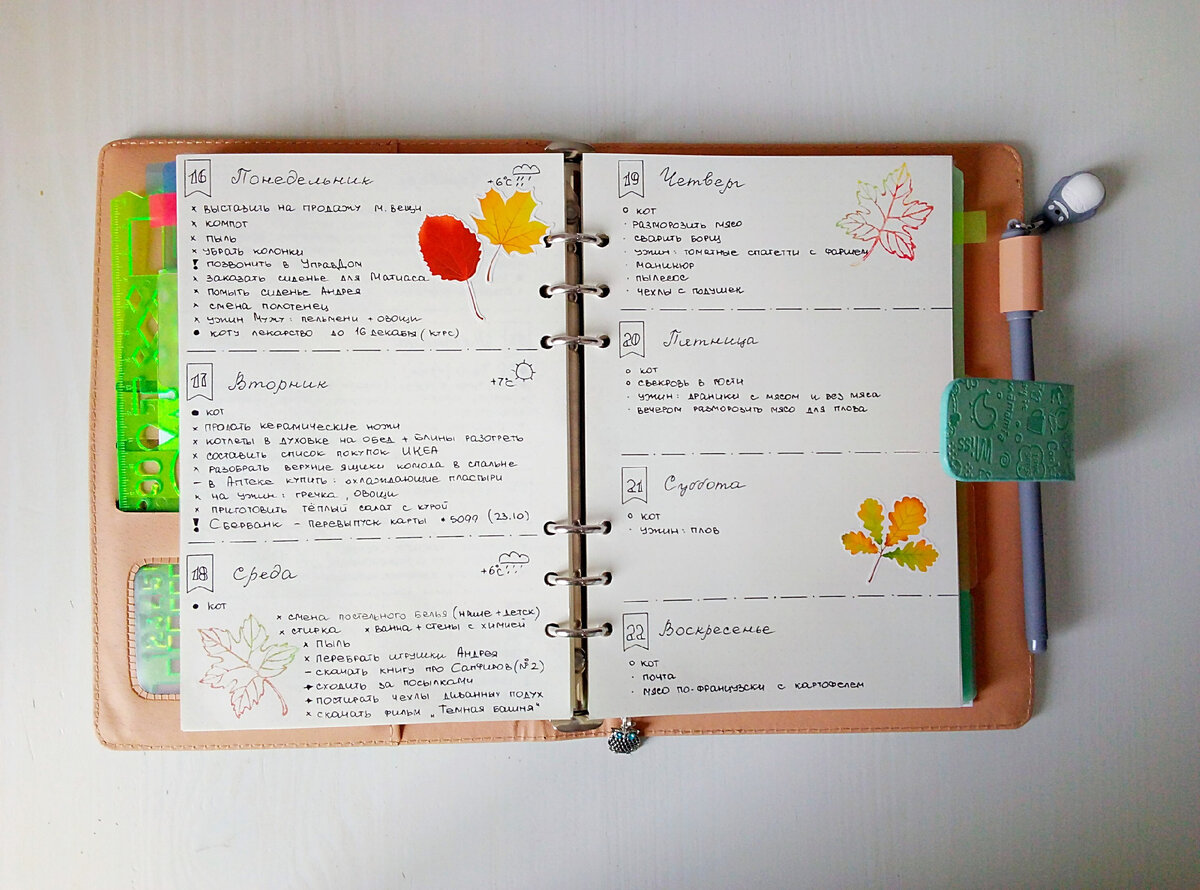 16 Понедельник
+6°C
× выставить на продажу м. вещи
× компот
× пыль
× убрать колонки
! позвонить в УправДом
× заказать сиденье для Матиаса
× помыть сиденье Андрея
× смена полотенец
× ужин Мужу: пельмени + овощи
● коту лекарство до 16 декабря (курс)
17 Вторник
+7°C
● кот
× продать керамические ножи
× котлеты в духовке на обед + блины разогреть
× составить список покупок ИКЕА
× разобрать верхние ящики комода в спальне
– в Аптеке купить: охлаждающие пластыри
× на ужин: гречка, овощи
× приготовить тёплый салат с курой
! Сбербанк – перевыпуск карты *5099 (23.10)
18 Среда
+6°C
● кот
× смена постельного белья (наше + детск)
× стирка × ванна + стены с химией
× пыль
× перебрать игрушки Андрея
– скачать книгу про Сапфиров (№2)
→ сходить за посылками
→ постирать чехлы диванных подух
× скачать фильм „Темная башня"
19 Четверг
○ кот
· разморозить мясо
· сварить борщ
· ужин: томатные спагетти с фаршем
· маникюр
· пылесос
· чехлы с подушек
20 Пятница
○ кот
○ свекровь в гости
· ужин: драники с мясом и без мяса
· вечером разморозить мясо для плова
21 Суббота
○ кот
· ужин: плов
22 Воскресенье
○ кот
· почта
· мясо по-французски с картофелем